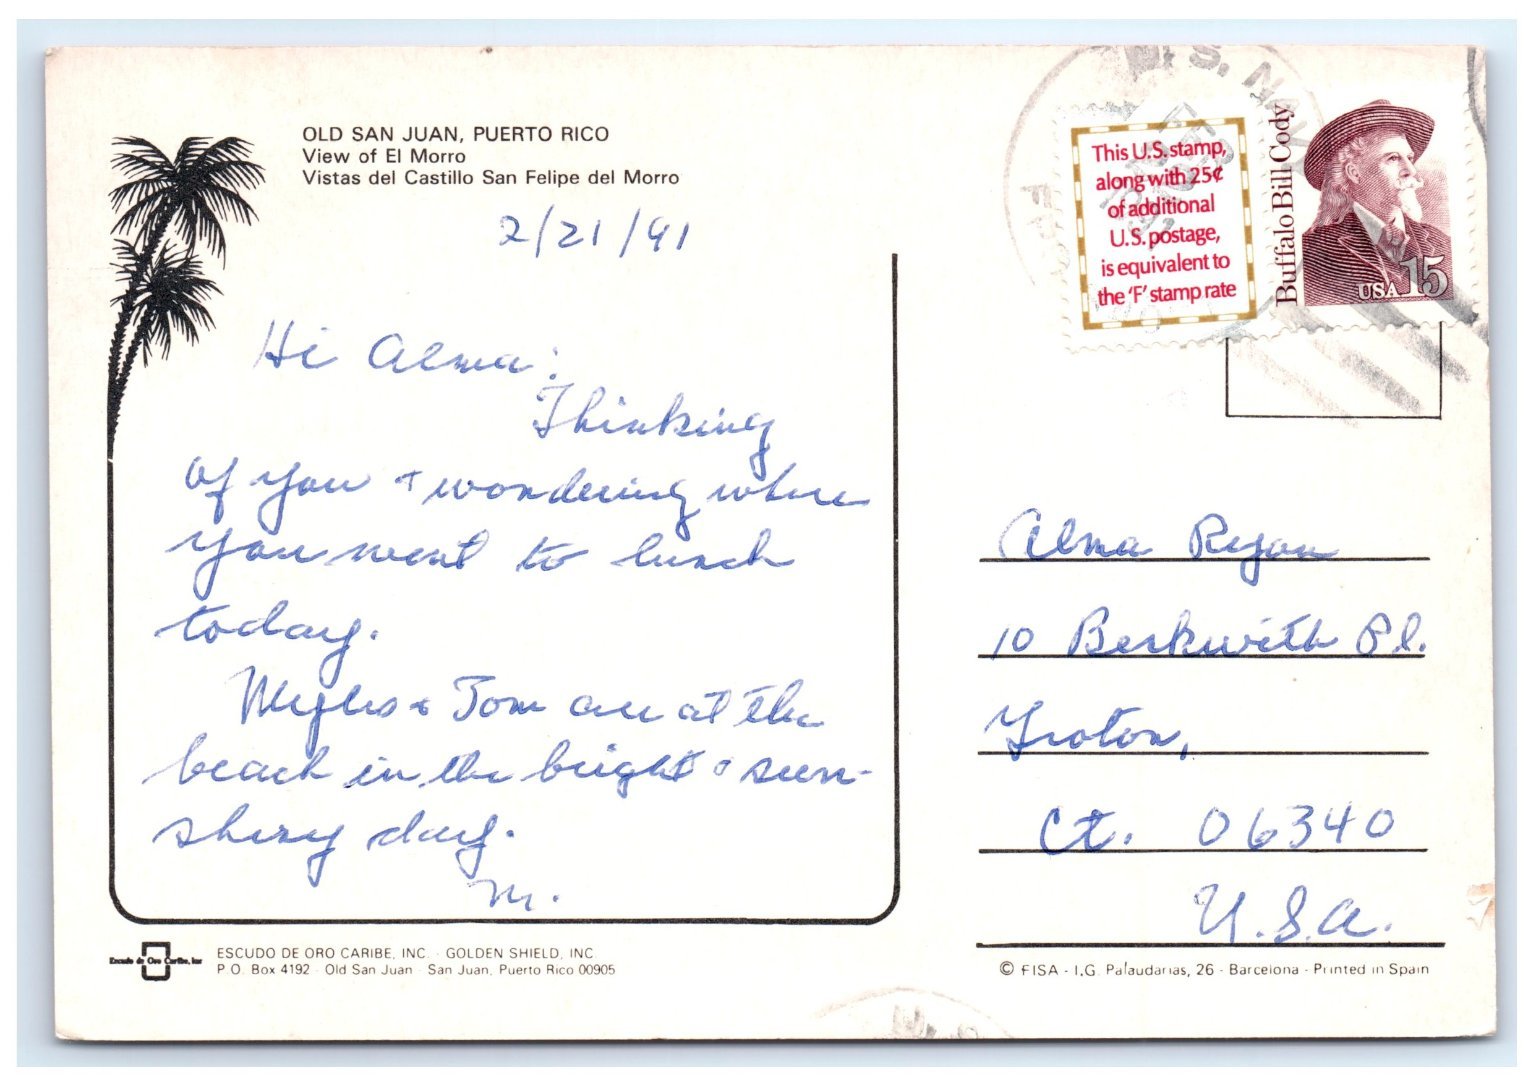 OLD SAN JUAN, PUERTO RICO
View of El Morro
Vistas del Castillo San Felipe del Morro
2/21/91
Hi Alma:
Thinking
of you + wondering where
you went to lunch
today.
Myles & Tom are at the
beach in the bright & sun-
shiny day.
M.
ESCUDO DE ORO CARIBE, INC. - GOLDEN SHIELD, INC.
P.O. Box 4192 - Old San Juan - San Juan, Puerto Rico 00905
Escudo de Oro Caribe, Inc
U.S. NAVY
FEB
1991
This U.S. stamp,
along with 25¢
of additional
U.S. postage,
is equivalent to
the 'F' stamp rate
Buffalo Bill Cody
USA 15
Alma Ryan
10 Berkwith Pl.
Groton,
Ct. 06340
U.S.A.
© FISA - I.G. Palaudarias, 26 - Barcelona - Printed in Spain